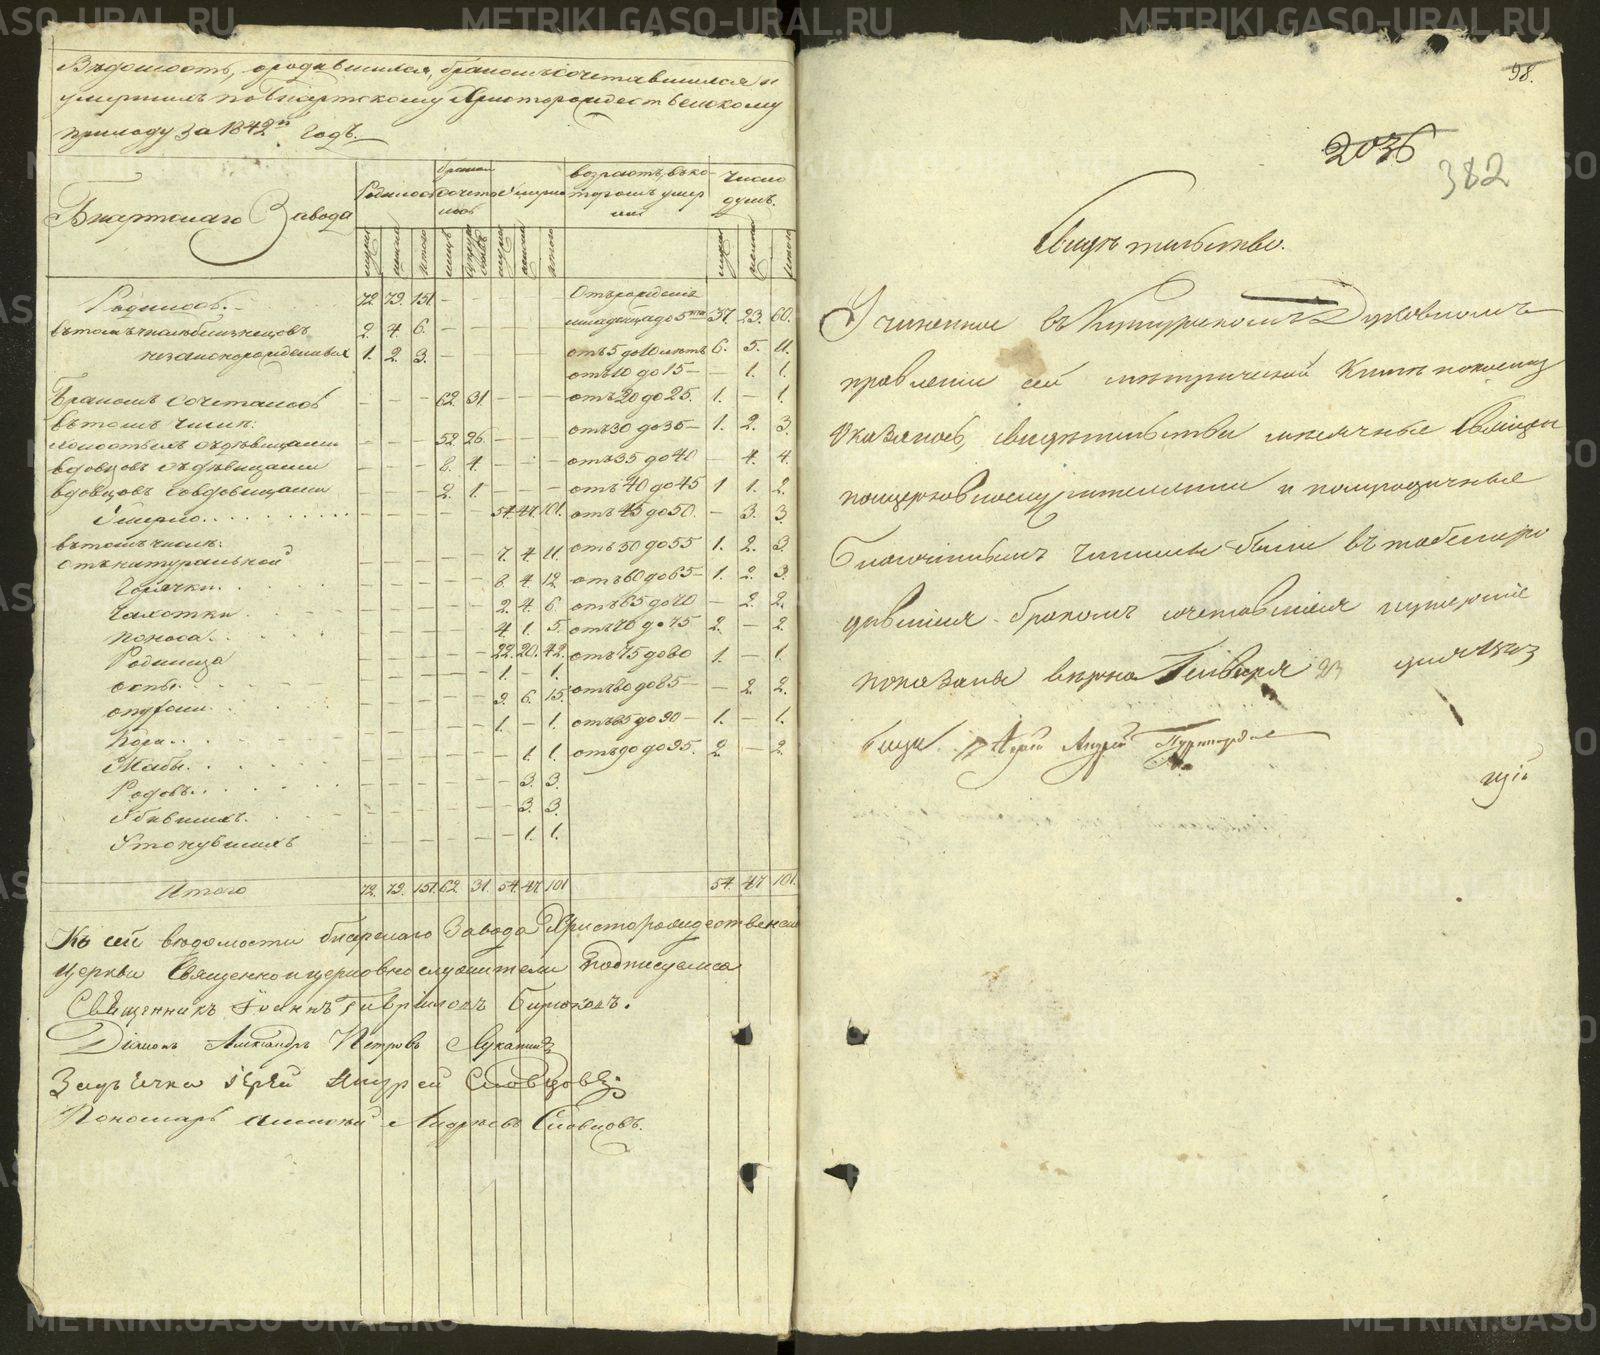 Вѣдомость, ородившихся, бракомъ сочетавшихся и
умершихъ по Бисертскому Христорождественскому
приходу за 1842й годъ.
Бисертскаго Завода
Родилось
бракомъ сочеталось
Умерло
возрастъ, въ которомъ умерли
Число душъ.
муж. женс. итого
Родилось. 72. 79. 151. — — — — — —
Отърожденія младенца до 5 37. 23. 60.
въ томъ числѣ близнецовъ 2. 4. 6. — — —
незаконорожденныхъ 1. 2. 3. — — —
отъ 5 до 10 лѣтъ 6. 5. 11.
отъ 10 до 15 — — 1. 1.
Бракомъ Сочеталось — — — 62. 31. — — —
отъ 20 до 25. 1. — 1.
въ томъ числѣ:
холостыхъ съ дѣвицами — — — 52. 26. — — —
отъ 30 до 35 — 1. 2. 3.
вдовцовъ съ дѣвицами — — — 8. 4. — — —
отъ 35 до 40 — 4. 4.
вдовцовъ со вдовицами — — — 2. 1. — — —
отъ 40 до 45 1 1. 2.
Умерло. — — — — — 54. 47. 101.
отъ 45 до 50. — 3. 3.
въ томъ числѣ:
отъ натуральной — — — — — 7. 4. 11
отъ 50 до 55 1. 2. 3
Горячки. — — — — — 8. 4. 12
отъ 60 до 65 — 1. 2. 3
Чахотки — — — — — 2. 4. 6.
отъ 65 до 70 — 2. 2.
Поноса. — — — — — 4. 1. 5.
отъ 70 до 75 2. — 2.
Родимца — — — — — 22. 20. 42.
отъ 75 до 80 1. — 1.
оспы. — — — — — 1. — 1.
опухоли. — — — — — 9. 6. 15.
отъ 80 до 85 — — 2. 2.
Кори. — — — — — 1. — 1.
отъ 85 до 90 — 1. — 1.
Жабы. — — — — — — 1. 1.
отъ 90 до 95. 2. — 2.
Родовъ. — — — — — — 3. 3.
Убившихъ. — — — — — — 3. 3.
Утонувшихъ — — — — — — 1. 1.
Итого 72. 79. 151. 62. 31. 54. 47. 101 54. 47 101.
Къ сей вѣдомости бисерскаго Завода Христорождественской
церкви Священно и церковно служители Подписуемся
Священникъ Іоаннъ Гавріиловъ Бирюковъ.
Діаконъ Александръ Петровъ Луканинъ
За дьячка іерей Андрей Словцовъ.
Пономарь Алексѣй Андреевъ Словцовъ.
98.
2036
382
Свидѣтельство.
Учиненное въ Кунгурскомъ Духовномъ
правленіи сей метрической книгѣ по коему
оказалось, свидѣтельства мѣсячные
по церковному и полугодичные
Благочиннымъ чинимы были въ табели ро
дившіеся бракомъ сочетавшіеся и умершіе
показаны вѣрно Генваря 23 дня 1843
года. Іерей Андрей
METRIKI.GASO-URAL.RU